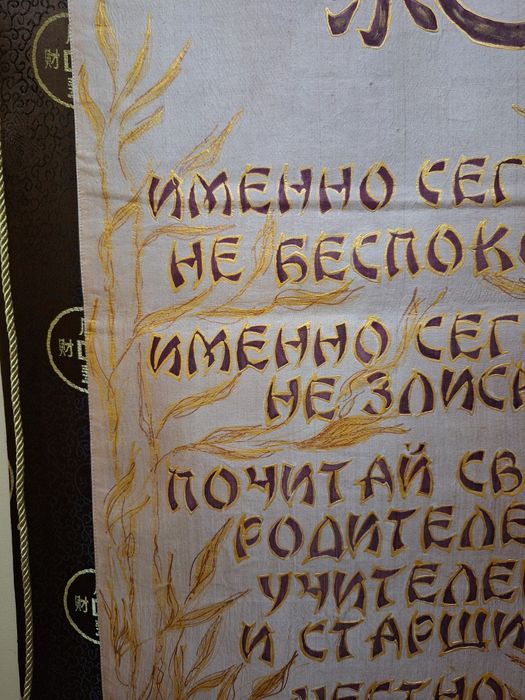 ИМЕННО СЕГ
НЕ БЕСПОКО
ИМЕННО СЕГ
НЕ ЗЛИСЬ
ПОЧИТАЙ СВ
РОДИТЕЛЕ
УЧИТЕЛЕ
И СТАРШИ
ЧЕСТНО